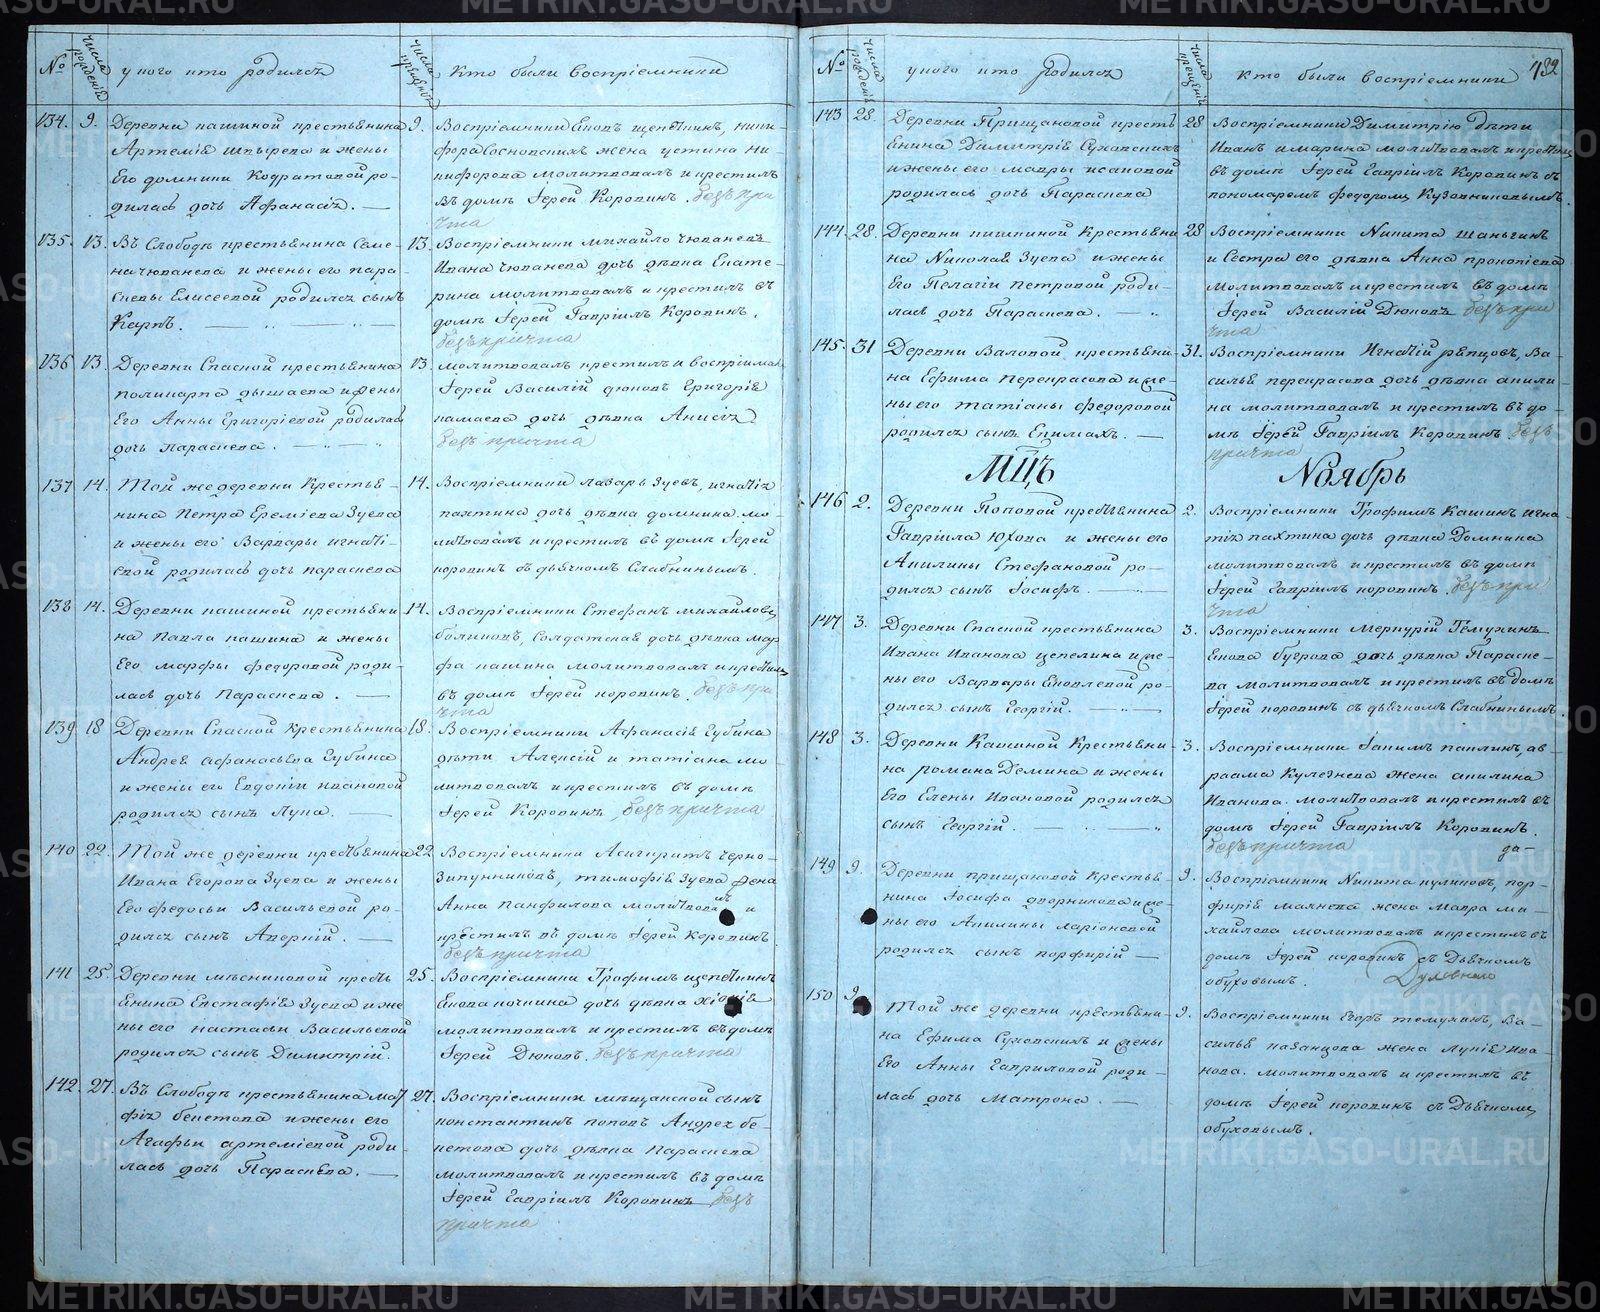 № числа рожденій у кого кто родился числа крещеній Кто были воспріемники
134. 9. Деревни пашиной крестьянина
Артемія Шпырева и жены
Его домники Кодратовой ро-
дилась дочь Афанасія.
9. Воспріемники Іяковъ щепѣткинъ, ники-
фора Сосновскихъ жена устина ни-
кифорова молитвовалъ и крестилъ
въ домѣ Іерей Коровинъ. безъ при
чта
135. 13. Въ Слободѣ крестьянина Семе-
на чюванева и жены его пара-
скевы Елисеевой родился сынъ
Карпъ.
13. Воспріемники михайло чюваневъ
Ивана чюванева дочь дѣвка Екате-
рина молитвовалъ и крестилъ въ
домѣ Іерей Гавріилъ Коровинъ.
безъ причта
136 13. Деревни Спасной крестьянина
поликарпа дышаева и жены
Его Анны Григоріевой родилась
дочь Параскева.
13. молитвовалъ крестилъ и воспріималъ
Іерей Василій дюковъ Григорія
камаева дочь дѣвка Анисія
безъ причта
137 14. Той же деревни Крестья-
нина Петра Ереміева Зуева
и жены его Варвары игнаті-
евой родилась дочь параскева
14. Воспріемники лазарь Зуевъ, игнатія
пахтина дочь дѣвка домника. мо-
литвовалъ и крестилъ въ домѣ Іерей
коровинъ съ дьячкомъ Слабнинымъ.
138 14. Деревни пашиной крестьяни
на Павла пашина и жены
Его марфы федоровой роди-
лась дочь Параскева.
14. Воспріемники Стефанъ михайловъ
Солдатская дочь дѣвка мар
фа пашина молитвовалъ и крестилъ
въ домѣ Іерей коровинъ. безъ при
чта
139. 18 Деревни Спасной Крестьянина
Андрея афанасьева Губина
и жены его Евдокіи ивановой
родился сынъ Лука.
18. Воспріемники Афанасія Губина
дѣти Алексій и татіана мо
литвовалъ и крестилъ въ домѣ
Іерей Коровинъ, безъ причта
140 22. Той же деревни крестьянина
Ивана Егорова Зуева и жены
Его федосьи Васильевой ро-
дился сынъ Аверкій.
22 Воспріемники Асигкритъ черно-
Зипунниковъ, тимофія Зуева жена
Анна Панфилова молитвовалъ и
крестилъ въ домѣ Іерей Коровинъ.
безъ причта
141 25. Деревни мясниковой кресть
янина Евстафія Зуева и же
ны его настасьи Васильевой
родился сынъ Димитрій.
25. Воспріемники Трофимъ щепѣткинъ
Іякова дочь дѣвка Хіонія
молитвовалъ и крестилъ въ домѣ
Іерей Дюковъ. безъ причта
142. 27. Въ Слободѣ крестьянина мат
фія бекетова и жены его
Агафьи артеміевой роди
лась дочь Параскева.
27. Воспріемники мѣщанской сынъ
константинъ поповъ Андрея бе-
кетова дочь дѣвка Параскева
молитвовалъ и крестилъ въ домѣ
Іерей Гавріилъ Коровинъ безъ
причта
№ числа рожденій у кого кто родился числа крещеній Кто были воспріемники
143 28. Деревни Прищановой кресть
янина Димитрія Суховскихъ
и жены его мавры исаковой
родилась дочь Параскева
28 Воспріемники Димитрію дѣти
Иванъ и марина молитвовалъ и крестилъ
въ домѣ Іерей Гавріилъ Коровинъ съ
пономаремъ федоромъ Кузовниковымъ.
144. 28. Деревни Крестьяни
на Николая Зуева и жены
Его Пелагіи Петровой роди-
лась дочь Параскева.
28 Воспріемники Никита Шаньгинъ
и Сестра его дѣвка Анна прокопіева
молитвовалъ и крестилъ въ домѣ
Іерей Василій Дюковъ безъ при
чта
145. 31 Деревни Валовой, крестьяни-
на Ефима Перекрасова и же-
ны его татіаны федоровой
родился сынъ Епимахъ.
31. Воспріемники Игнатій рѣпцовъ, Ва-
силья перекрасова дочь дѣвка акили-
на молитвовалъ и крестилъ въ до-
мѣ Іерей Гавріилъ Коровинъ. безъ
причта
МЦЪ Ноябрь
146 2. Деревни Поповой крестьянина
Гавріила Юхова и жены его
Акилины Стефановой ро-
дился сынъ Іосифъ.
2. Воспріемники Трофимъ Кашинъ игна-
тія пахтина дочь дѣвка Домника
молитвовалъ и крестилъ въ домѣ
Іерей Гавріилъ коровинъ. безъ при
чта
147 3. Деревни Спасной крестьянина
Ивана Иванова цепелина и же-
ны его Варвары Яковлевой ро-
дился сынъ Георгій.
3. Воспріемники Меркурій Темухинъ
Якова бугрова дочь дѣвка Параске-
ва молитвовалъ и крестилъ въ домѣ
Іерей коровинъ съ дьячкомъ Слабнинымъ.
148 3. Деревни Кашиной Крестьяни-
на романа Демина и жены
Его Елены Ивановой родился
сынъ Георгій.
3. Воспріемники Іакимъ паклинъ, ав-
раама Кулезнева жена акилина
Иванова. молитвовалъ и крестилъ въ
домѣ Іерей Гавріилъ Коровинъ.
безъ причта
149 9. Деревни прищановой крестья-
нина Іосифа дворникова и же-
ны его Акилины ларіоновой
родился сынъ порфирій
9. Воспріемники Никита куликовъ, пор-
фирія малнева жена мавра ми-
хайлова молитвовалъ и крестилъ въ
домѣ Іерей коровинъ съ Дьячкомъ
обуховымъ.
150 9. Той же деревни крестьяни-
на Ефима Суховскихъ и жены
Его Анны Гавриловой роди-
лась дочь Матрона.
9. Воспріемники Егоръ темухинъ, Ва-
силья казанцова жена Лукія ива-
нова. молитвовалъ и крестилъ въ
домѣ Іерей коровинъ съ Дьячкомъ
обуховымъ.
METRIKI.GASO-URAL.RU